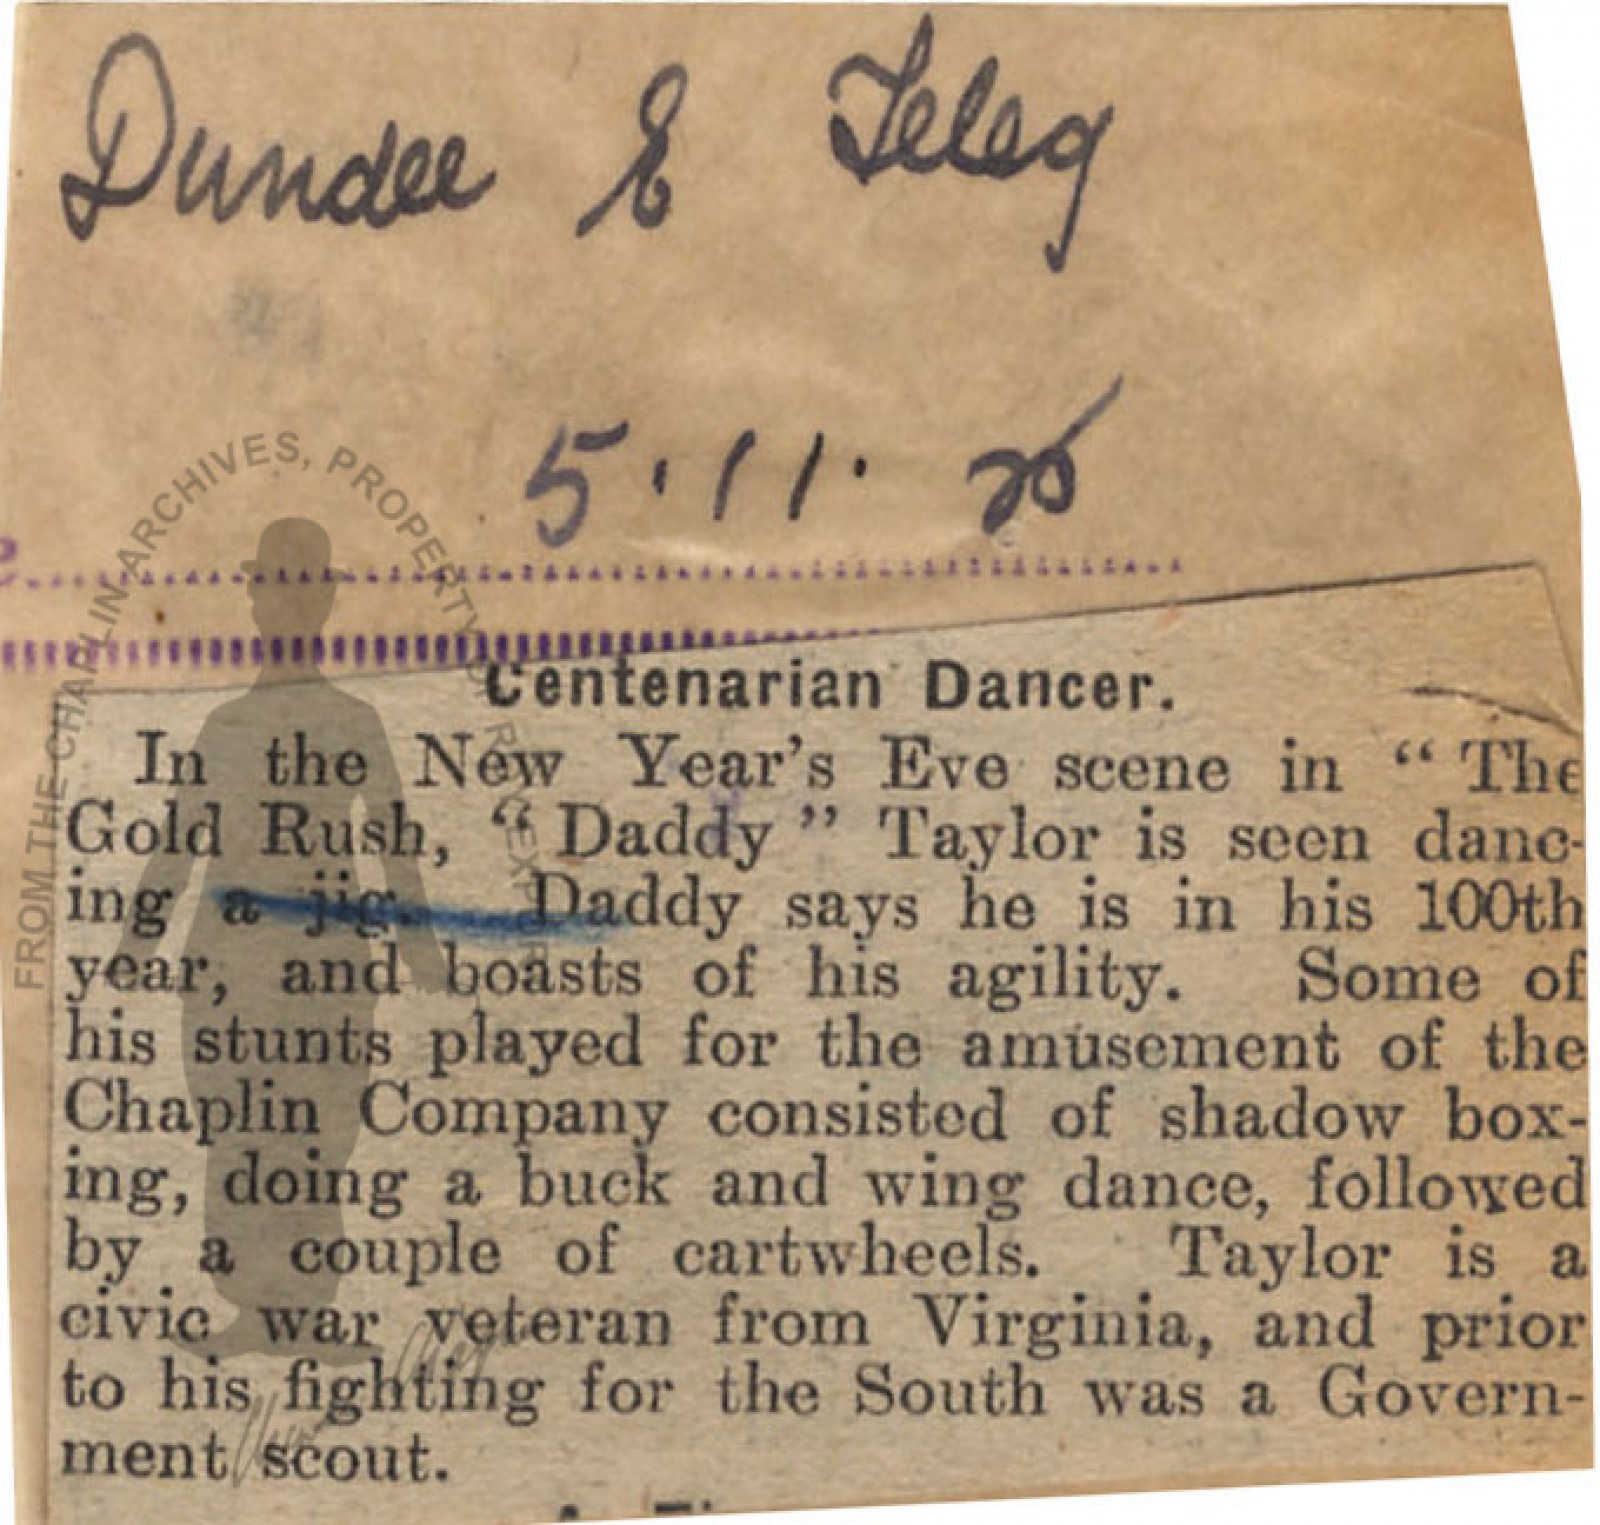 Dundee E Teleg
5.11.25
FROM THE CHAPLIN ARCHIVES, PROPERTY OF ROY EXPORT
Centenarian Dancer.
In the New Year's Eve scene in “ The
Gold Rush, “ Daddy ” Taylor is seen danc-
ing a jig. Daddy says he is in his 100th
year, and boasts of his agility. Some of
his stunts played for the amusement of the
Chaplin Company consisted of shadow box-
ing, doing a buck and wing dance, followed
by a couple of cartwheels. Taylor is a
civic war veteran from Virginia, and prior
to his fighting for the South was a Govern-
ment scout.